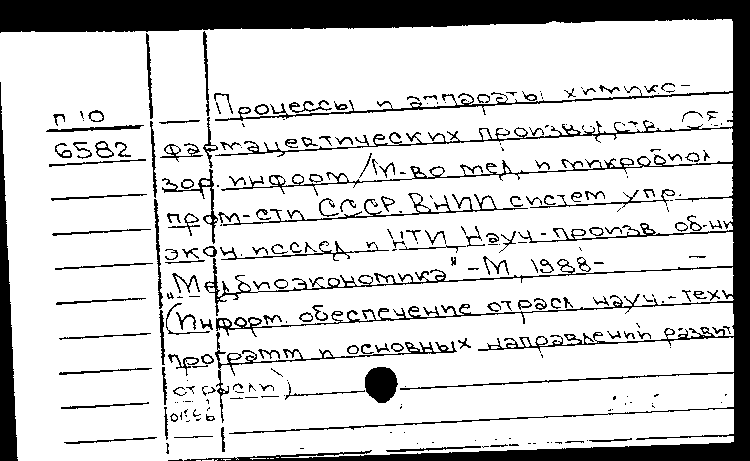 П 10
6582
Процессы и аппараты химико-
фармацевтических производств. Об-
зор. информ/М-во мед. и микробиол.
пром-сти СССР. ВНИИ систем упр.
экон. исслед. и НТИ, Науч.-произв. об-ни
„Медбиоэкономика" -М., 1988-
(Информ. обеспечение отрасл. науч.-техн
программ и основных направлений развит
отрасли)